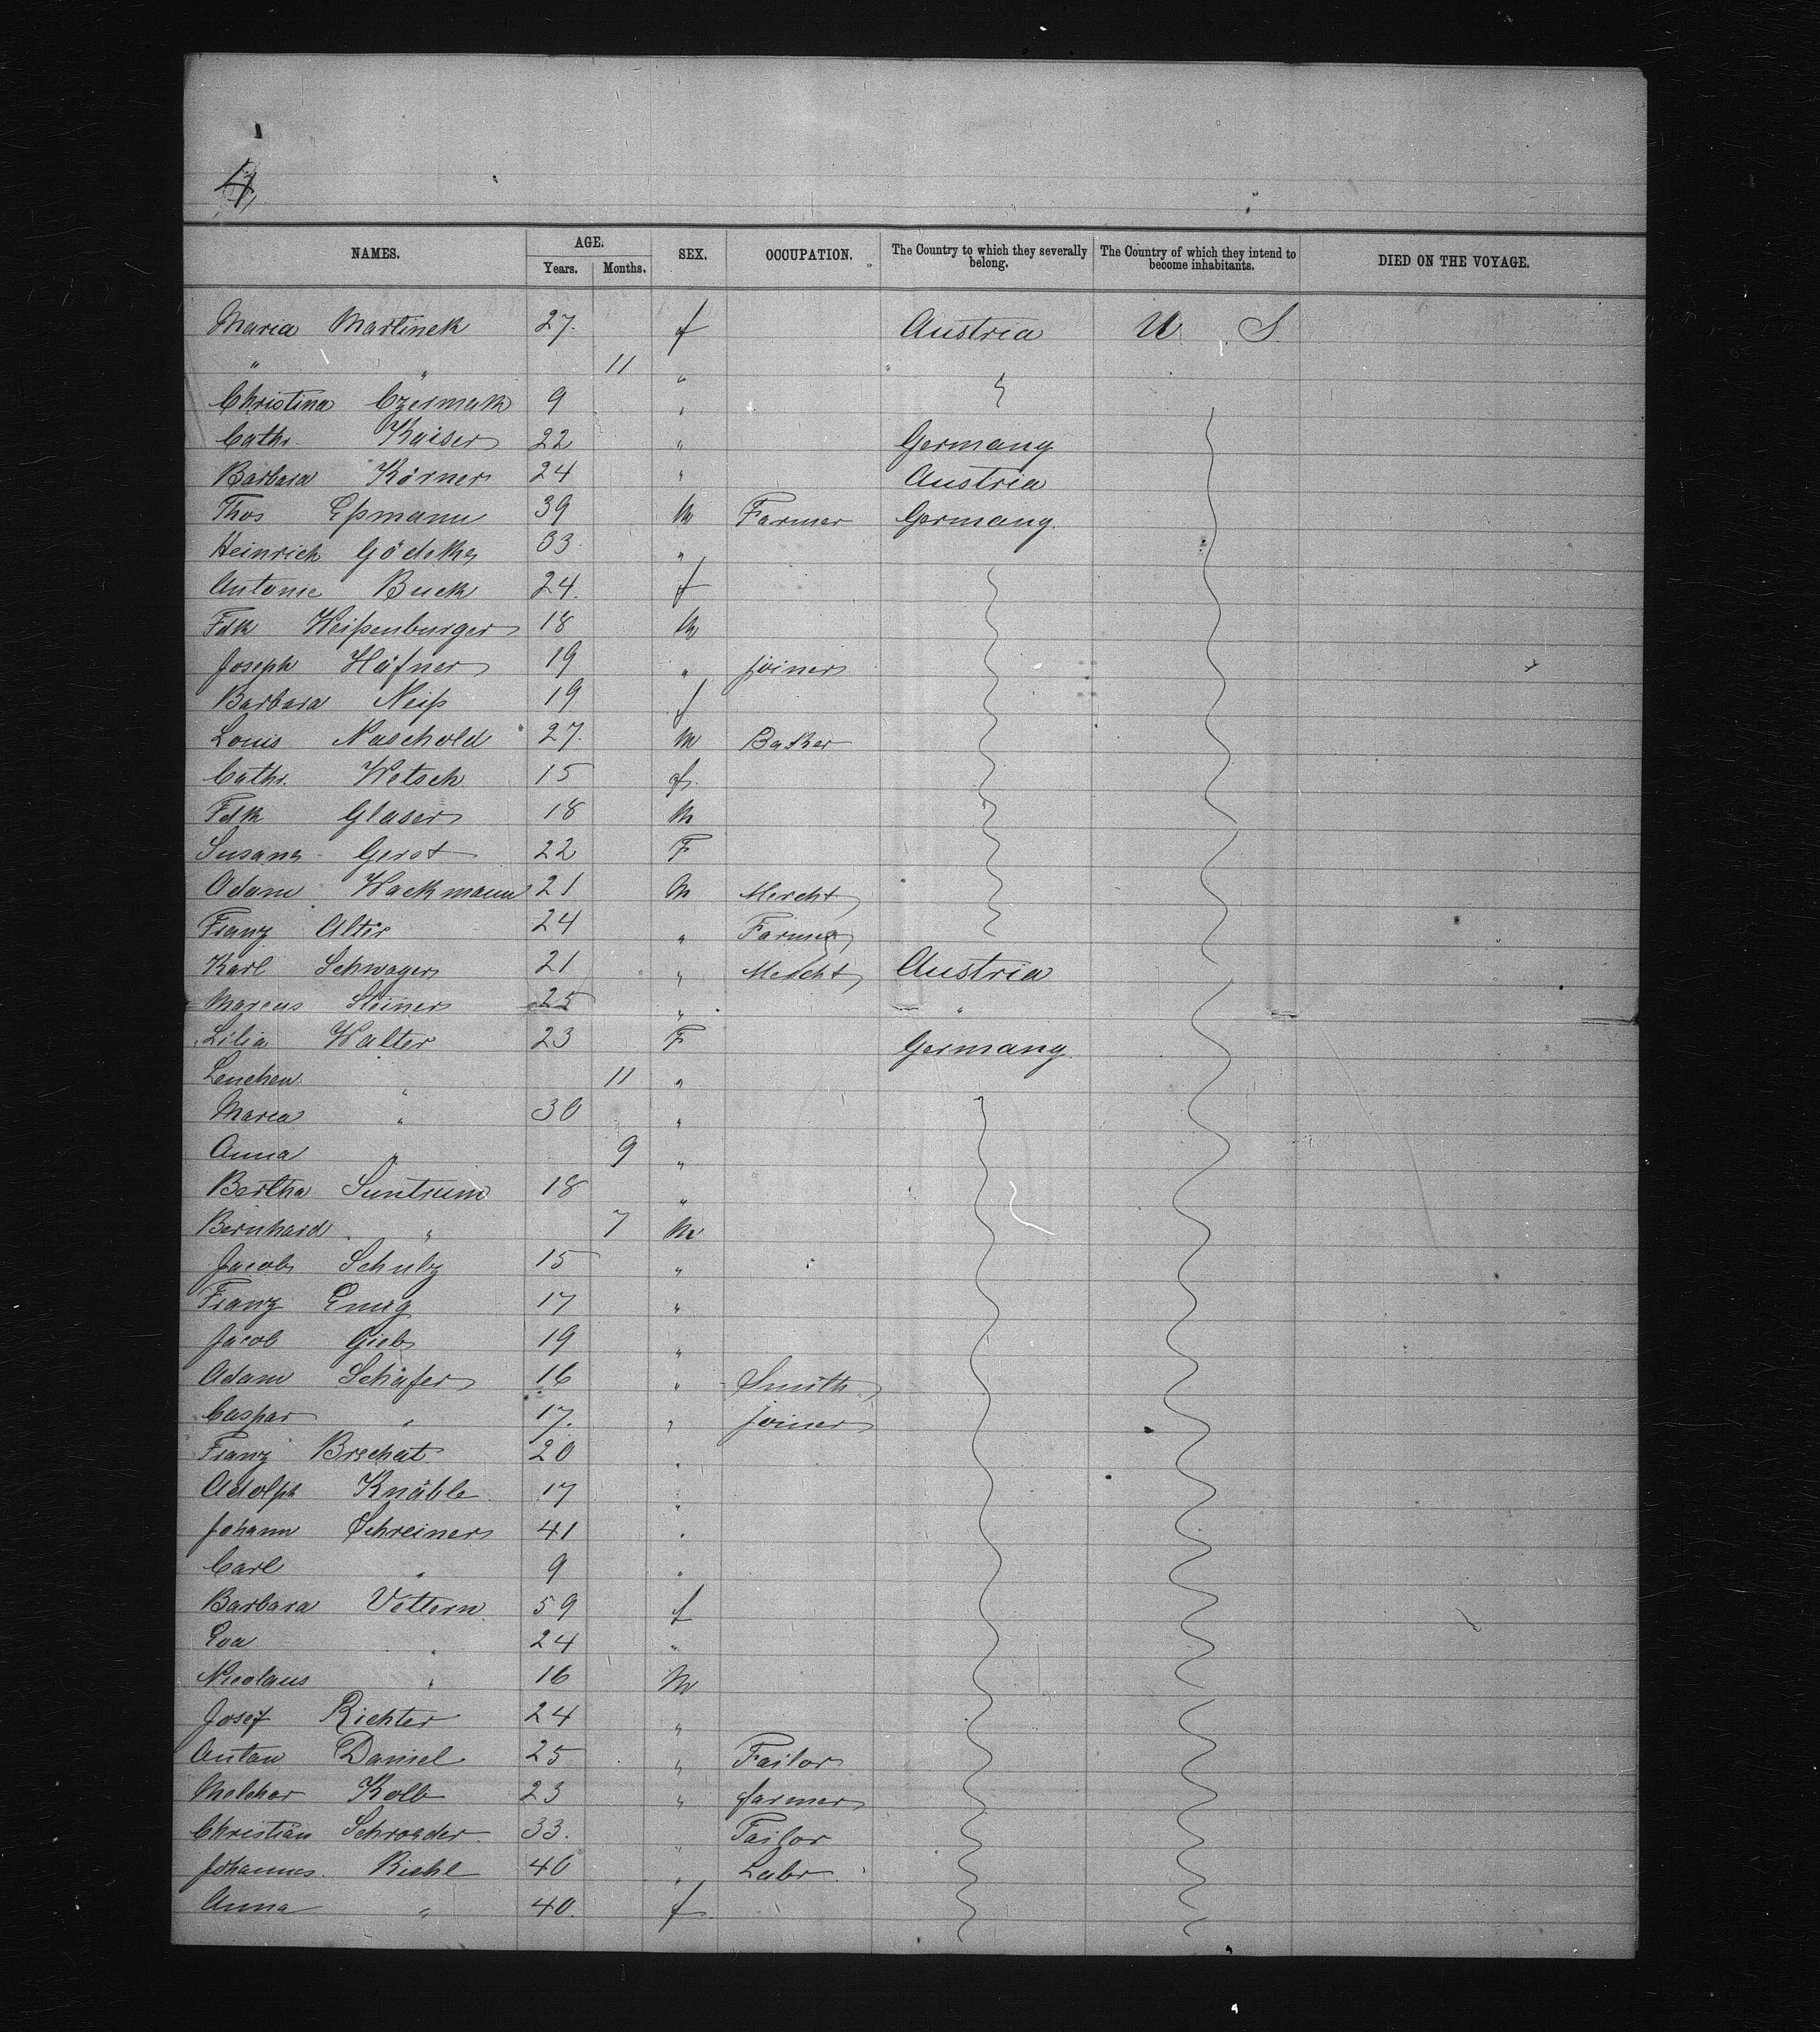 4,
NAMES. AGE. Years. Months. SEX. OCCUPATION. The Country to which they severally belong. The Country of which they intend to become inhabitants. DIED ON THE VOYAGE.
Maria Martinek 27. f Austria U. S.
" " 11 "
Christina Czermak 9 "
Cathr. Kaiser 22 " Germany
Barbara Körner 24 " Austria
Thos Eßmann 39 M Farmer Germany.
Heinrich Gödeke 33 "
Antonie Buck 24. f
Fdk Weißenburger 18 M
Joseph Häfner 19 " joiner
Barbara Neiß 19 f
Louis Naschold 27. M Baker
Cathr. Wetsch 15 f.
Fdk Glaser 18 M
Susana Gerst 22 F
Adam Wackmann 21 M Mercht
Franz Altir 24 " Farmer
Karl Schwager 21 " Mercht Austria
Marcus Steiner 25 " "
Lilia Walter 23 F Germany.
Lenchen " 11 "
Maria " 30 "
Anna " 9 "
Bertha Suntrum 18 "
Bernhard " 7 M
Jacob Schulz 15 "
Franz Emig 17 "
Jacob Gieb 19 "
Adam Schäfer 16 " Smith
Caspar " 17. " joiner
Franz Brechat 20 "
Adolph Knäble 17 "
Johann Schreiner 41 "
Carl " 9 "
Barbara Vettern 59 f
Eva " 24 "
Nicolaus " 16 M
Josef Richter 24 "
Anton Daniel 25 " Tailor
Melchor Kolb 23 " farmer
Christian Schroeder 33. " Tailor
Johannes Riehl 40 " Labr.
Anna " 40. f